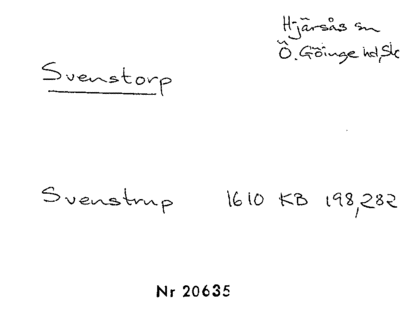 Hjärsås sn
Ö. Göinge hd, Sk
Svenstorp
Svenstrup 1610 KB 198,282
Nr 20635